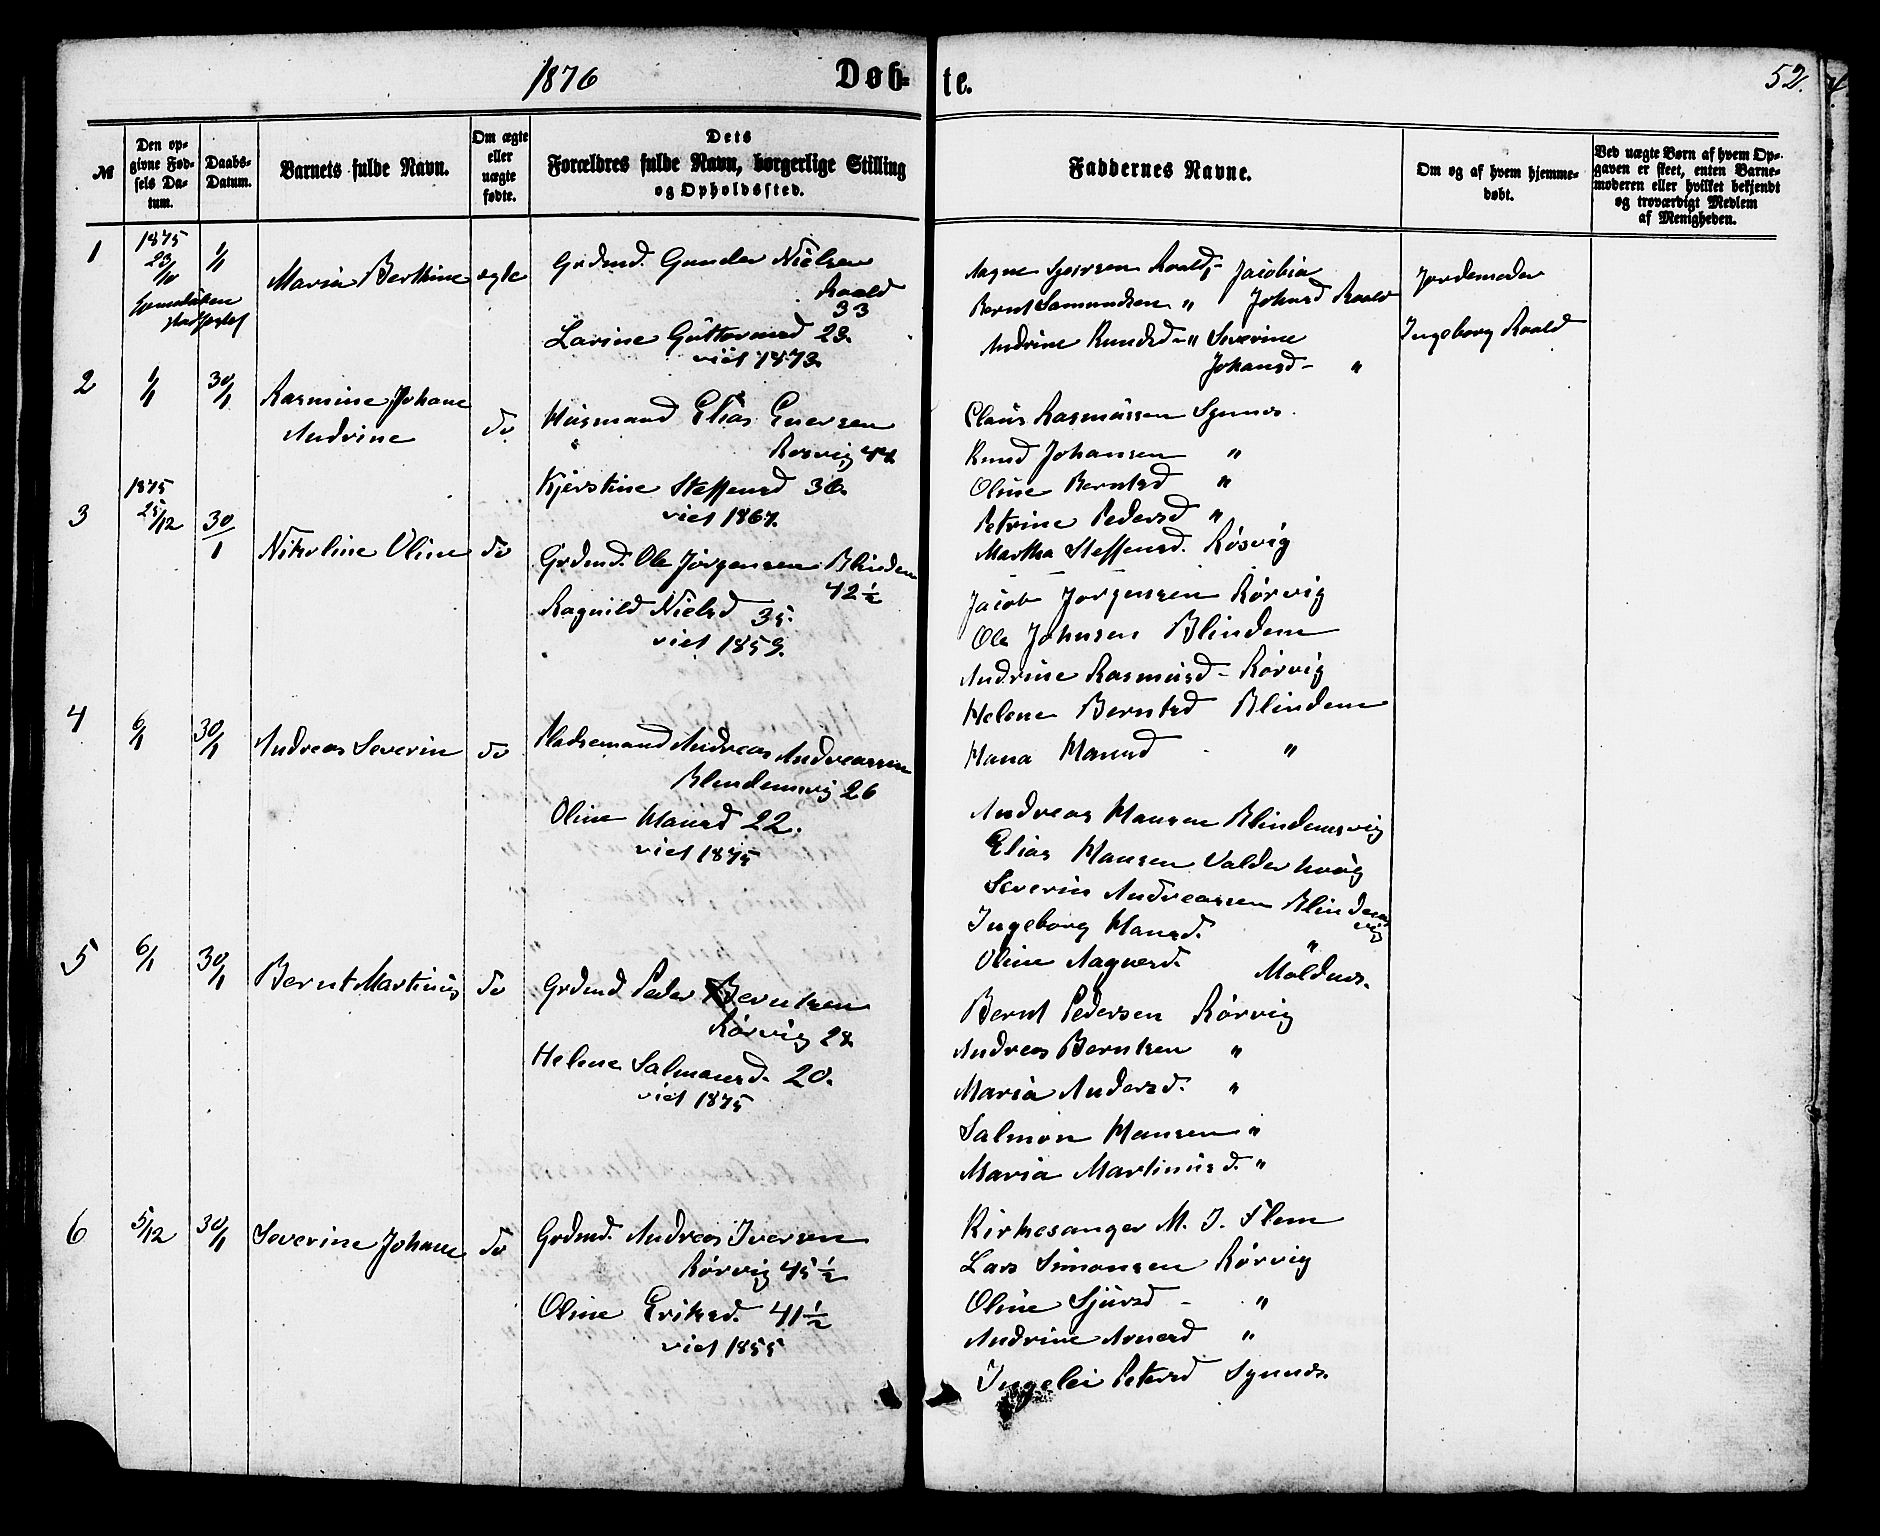 1876
Døb-
te.
52.
№
Den op-
givne Fød-
sels Da-
tum.
Daabs-
Datum.
Barnets fulde Navn.
Om ægte
eller
uægte
fødte.
Dets
Forældres fulde Navn, borgerlige Stilling
og Opholdssted.
Faddernes Navne.
Om og af hvem hjemme-
døbt.
Ved uægte Børn af hvem Op-
gaven er skeet, enten Barne-
moderen eller hvilket bekjendt
og troværdigt Medlem
af Menigheden.
1
1875
1/1
Maria Berthine
ægte
Grdmd. Gunder Nielsen
Roald
33
Larine Guttormsd 23.
viet 1873.
Aagne Sjursen Roald, - Jacobia
Bernt Samundsen " Johnsd Roald
Andrine Knudsd - " Severine
Johansd - "
Jordemoder
Ingeborg Roald
2
1/1
30/1
Rasmine Johane
Andrine
do
Husmand Elias Enersen
Rørvig 44
Kjerstine Steffensd 36.
viet 1867.
Claus Rasmussen Synnes.
Knud Johansen "
Oline Berntsd "
Petrine Pedersd "
Martha Steffensd. Rørvig
3
1875
25/12
30/1
Nikoline Oline
do
Grdmd. Ole Jørgensen Blindem
42 1/2
Ragnild Nielsd 35.
viet 1859.
Jacob Jørgensen Rørvig
Ole Johnsen Blindem
Andrine Rasmusd - Rørvig
Helene Berntsd Blindem
Hana Hansd - "
4
6/1
30/1
Andreas Severin
do
Pladsemand Andreas Andreassen
Blindemsvig 26
Oline Hansd 22.
viet 1875
Andreas Hansen Blindemsvig
Elias Hansen Valderhoug
Severin Andreassen Blindems
vig
Ingeborg Hansd. "
Oline Aagnesd. Moldnes.
5
6/1
30/1
Bernt Martinus
do
Grdmd Peder Berntsen
Rørvig 28
Helene Salmonsd. 20.
viet 1875
Bernt Pedersen Rørvig
Andreas Berntsen "
Maria Andersd. "
Salmon Hansen "
Maria Martinusd. "
6
5/12
30/1
Severine Johane
do
Grdmd. Andreas Iversen
Rørvig 45 1/2
Oline Eriksd. 41 1/2
viet 1855
Kirkesanger M. J. Flem
Lars Simonsen Rørvig
Oline Sjursd - "
Andrine Arnesd "
Ingelei Petersd Synnes.